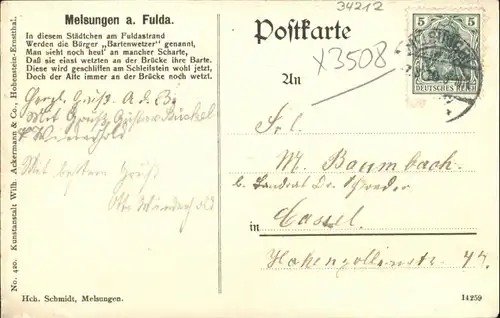 34212
Melsungen a. Fulda.
In diesem Städtchen am Fuldastrand
Werden die Bürger „Bartenwetzer" genannt,
Man sieht noch heut' an mancher Scharte,
Daß sie einst wetzten an der Brücke ihre Barte.
Diese wird geschliffen am Schleifstein wohl jetzt,
Doch der Alte immer an der Brücke noch wetzt.
Postkarte
X3508
An
5 5
DEUTSCHES REICH
Herzl. Gruß
Mit Gruß
Wiederhold
Mit bestem Gruß
Otto Wiederhold
Frl.
M. Baumbach.
b. Landrat Dr.
in Cassel.
Hohenzollernstr. 47.
No. 420. Kunstanstalt Wilh. Ackermann & Co., Hohenstein-Ernstthal.
Hch. Schmidt, Melsungen.
14259